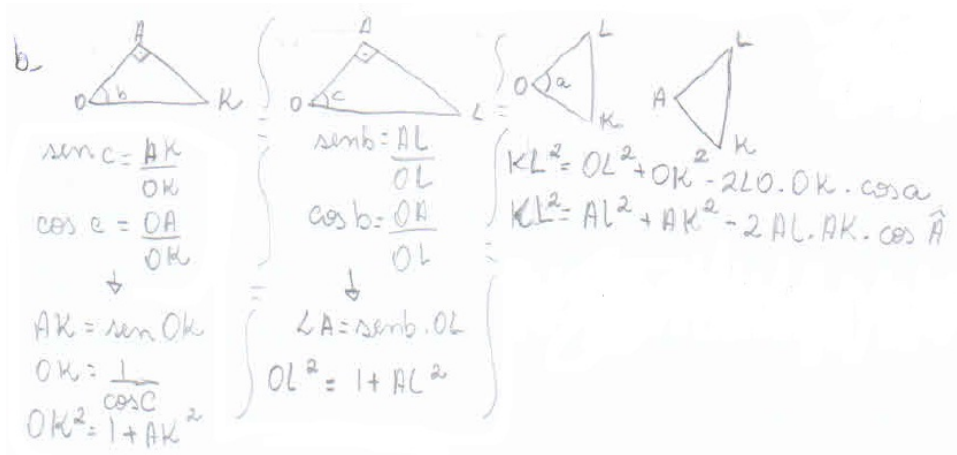 b.
A
O b K
sen c = AK / OK
cos c = OA / OK
↓
AK = sen OK
OK = 1 / cosC
OK² = 1 + AK²
A
O c L
senb = AL / OL
cos b = OA / OL
↓
LA = senb . OL
OL² = 1 + AL²
L
O a
K
L
A
K
KL² = OL² + OK² - 2LO . OK . cosa
KL² = AL² + AK² - 2 AL . AK . cos Â